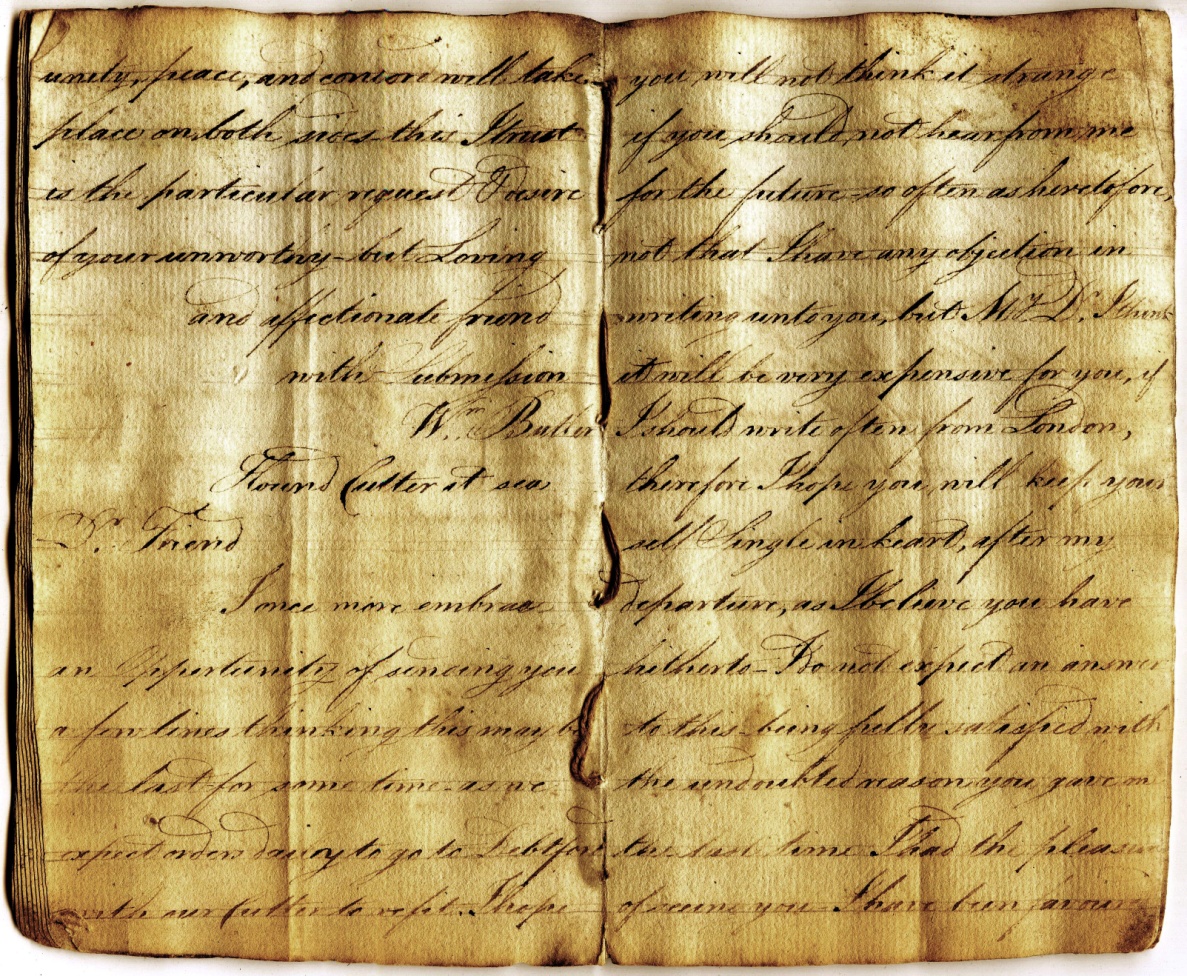 unity, peace, and concord will take
place on both sides this I trust
is the particular request & desire
of your unworthy but Loving
and affectionate friend
with Submission
Wm.
Cutter at sea
Dr. Friend
I once more embrace
an Oppertunity of sending you
a few lines thinking this may be
the last for some time as we
expect orders daily to go to Debtford
with our Cutter to refit. I hope
you will not think it strange
if you should not hear from me
for the future so often as heretofore,
not that I have any objection in
writing unto you, but My Dr. I think
it will be very expensive for you, if
I should write often from London,
therefore I hope you will keep your
self Single in heart, after my
departure, as I believe you have
hitherto - Do not expect an answer
to this being fully satisfied with
the undoubted reason you gave me
the last time I had the pleasure
of seeing you I have been